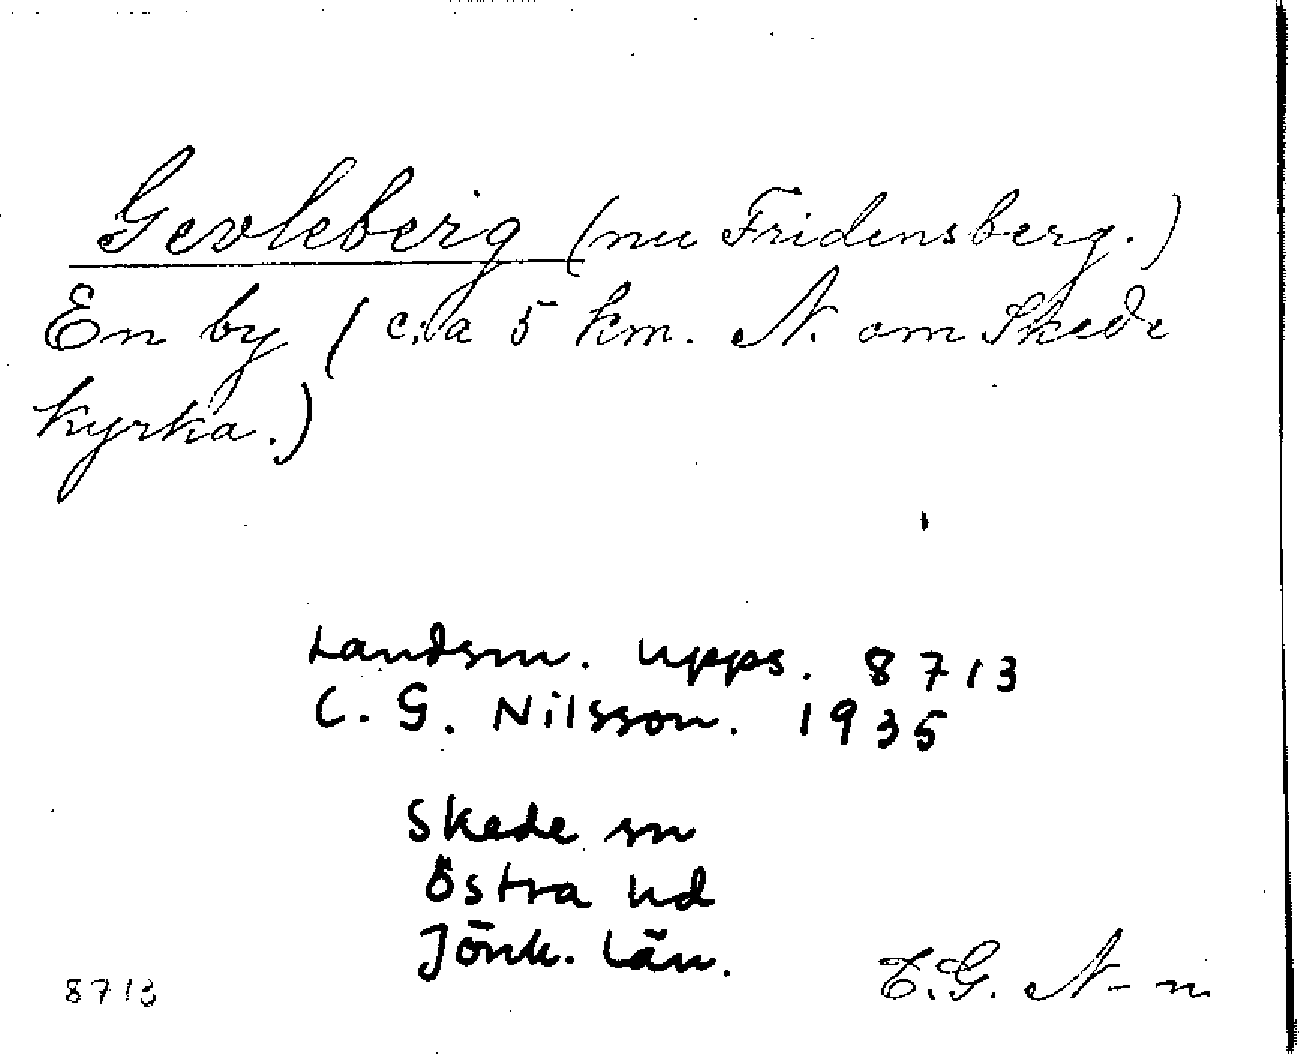 Gevleberg (nu Fridensberg.)
En by (c:a 5 km. N. om Skede
kyrka.)
Landsm. Upps. 8713
C. G. Nilsson. 1935
Skede sn
Östra hd
Jönk. län.
8713 C. G. N-n.